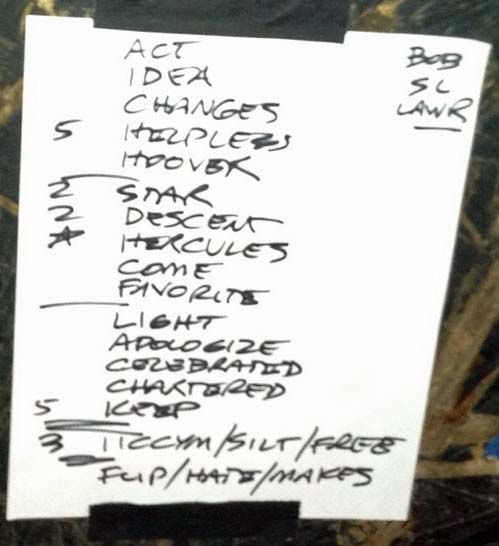 ACT
IDEA
CHANGES
5 HELPLESS
HOOVER
2 STAR
2 DESCENT
★ HERCULES
COME
FAVORITE
LIGHT
APOLOGIZE
CELEBRATED
CHARTERED
5 KEEP
3 IICCYM/SILT/FREE
FLIP/HATE/MAKES
BOB
SL
LAWR